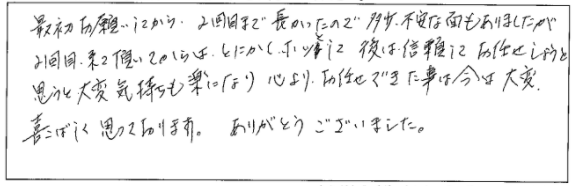 最初お願いしてから、2回目まで長かったので多少、不安な面もありましたが
2回目、来て頂いてからは、とにかくホッと 後は信頼して お任せしようと
思うと大変気持ちも楽になり 心より、お任せできた事は今は大変、
喜こばしく思っております。 ありがとうございました。